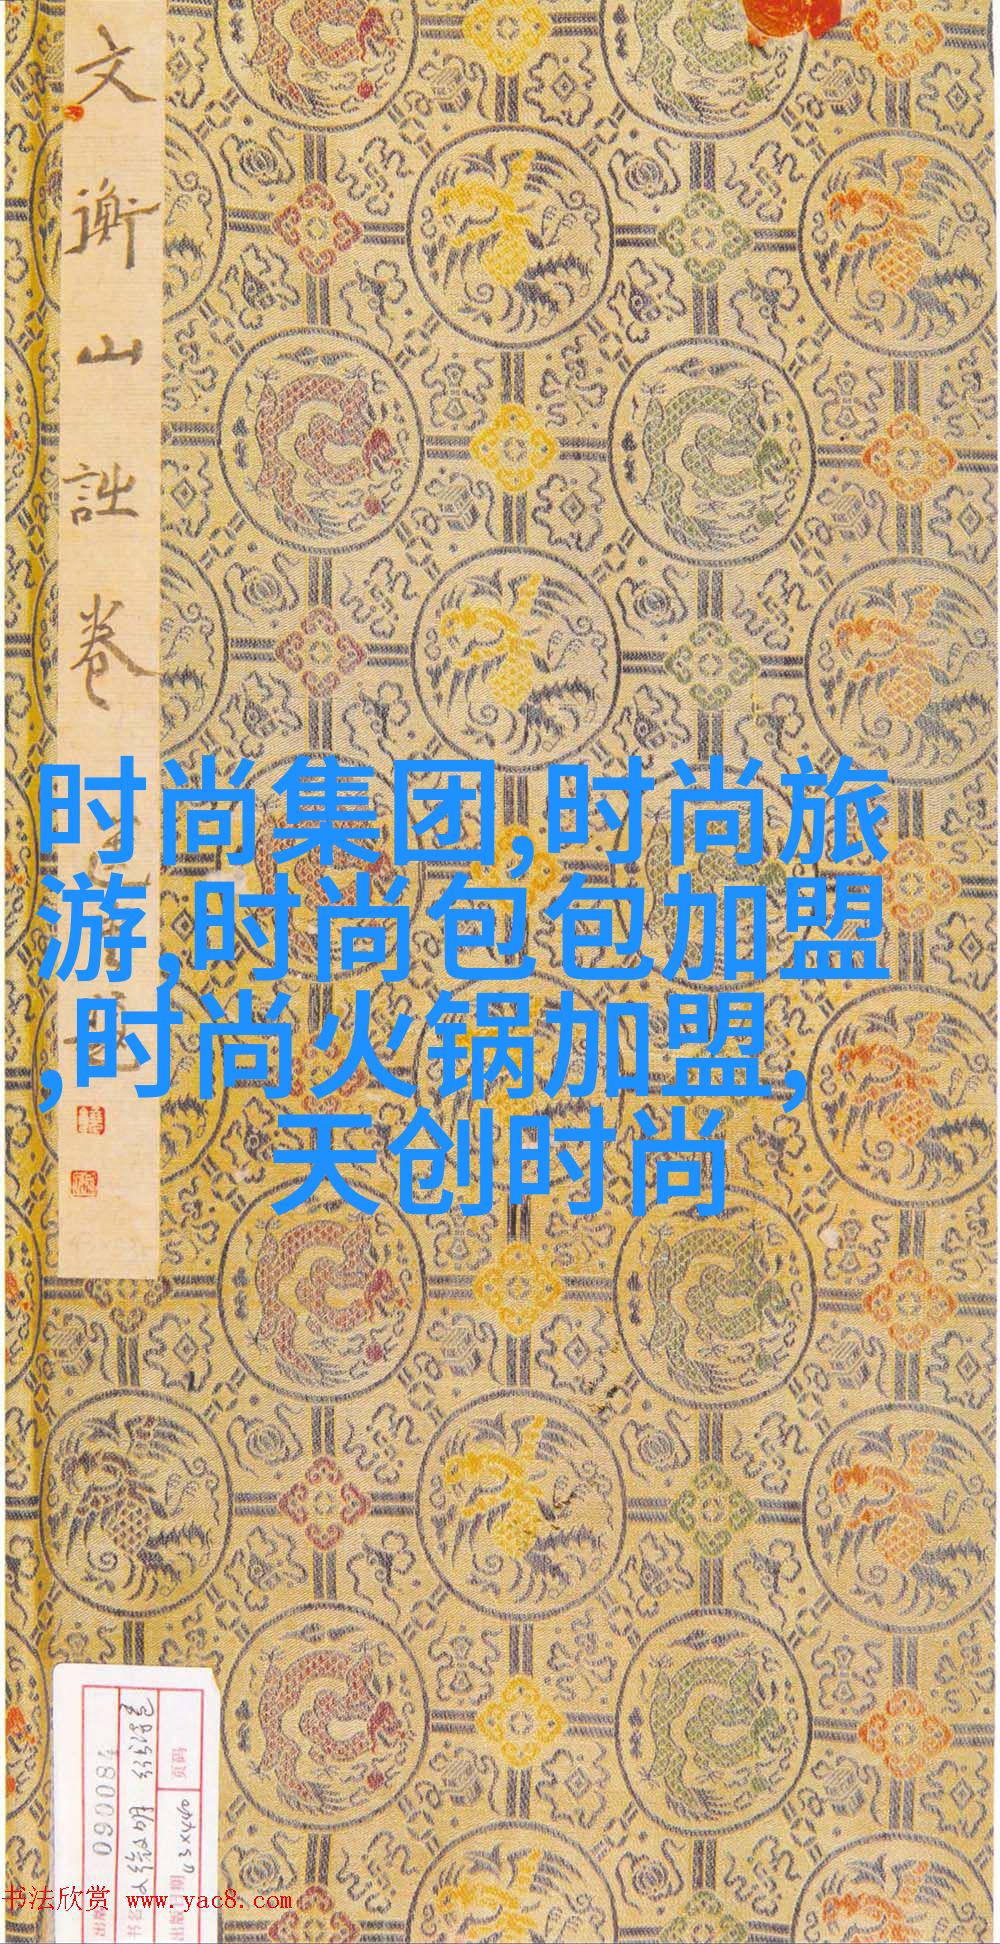 文衡山詩卷
时尚集团,时尚旅
游,时尚包包加盟
,时尚火锅加盟,
天创时尚
090084
页码
43x440
书法欣赏 www.yac8.com